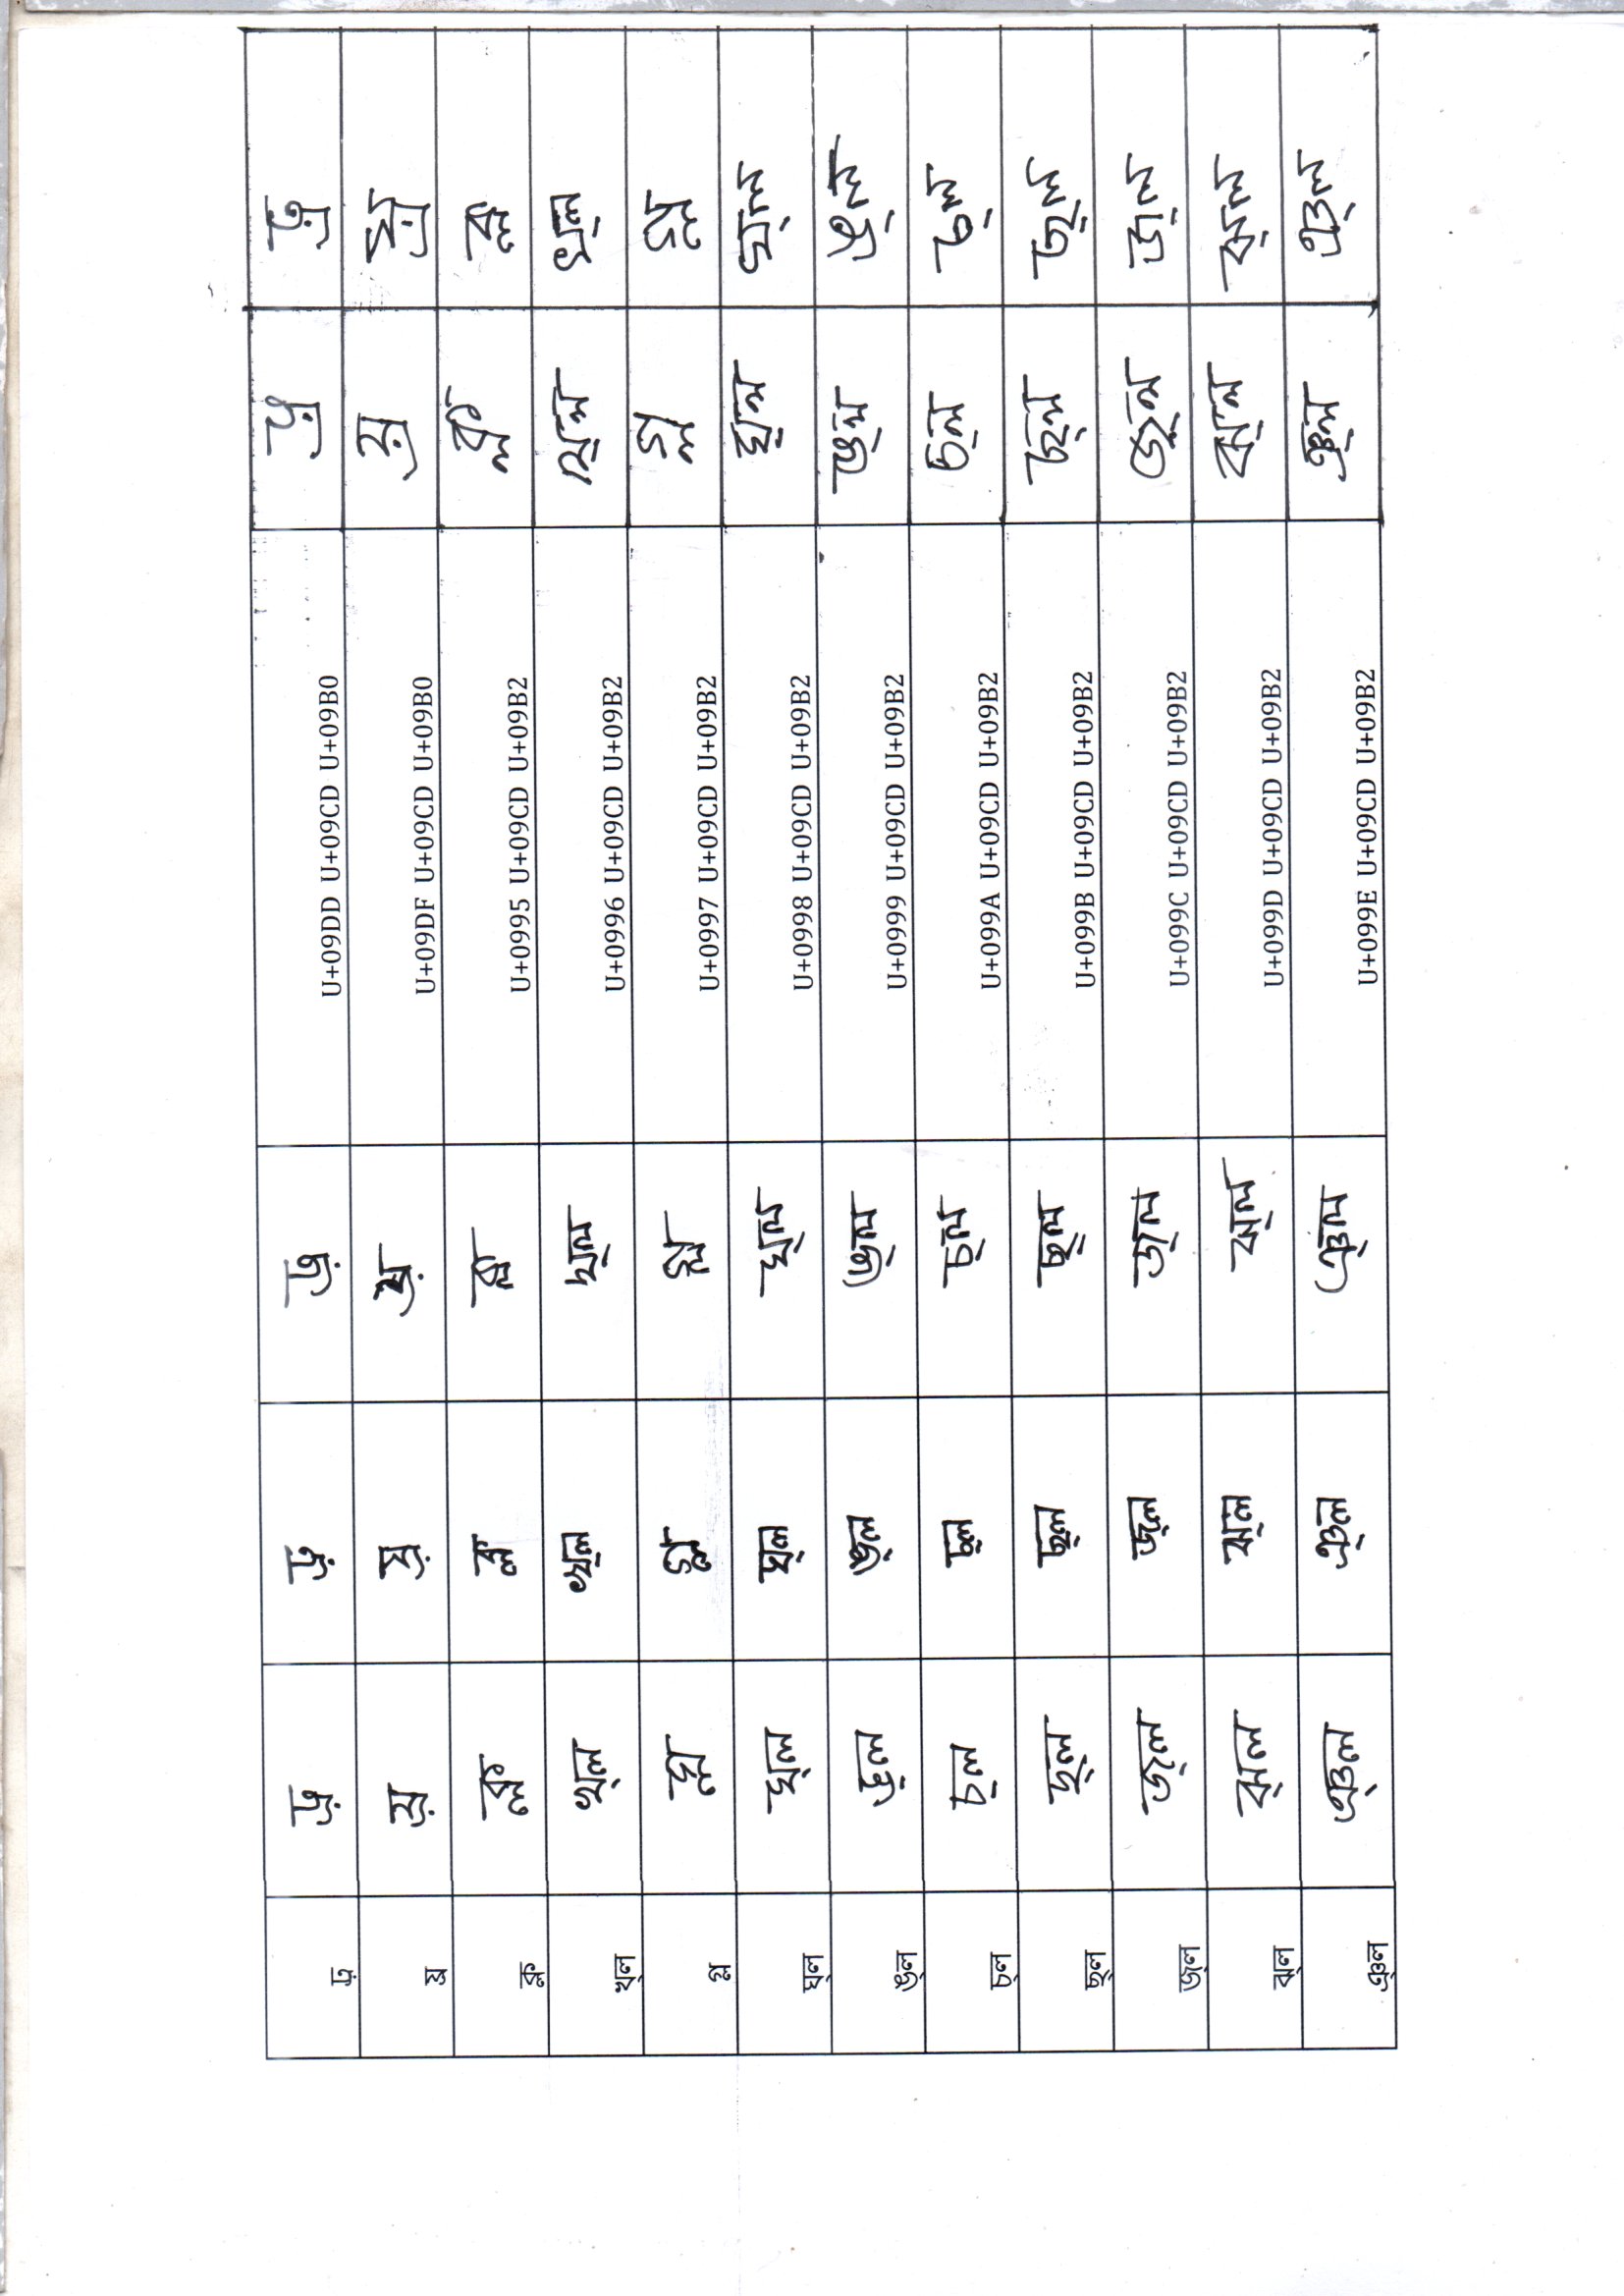 ঢ়্র ঢ়্র ঢ়্র ঢ়্র U+09DD U+09CD U+09B0 ঢ়্র ঢ়্র
য়্র য়্র য়্র য়্র U+09DF U+09CD U+09B0 য়্র য়্র
ক্ল ক্ল ক্ল ক্ল U+0995 U+09CD U+09B2 ক্ল ক্ল
খ্ল খ্ল খ্ল খ্ল U+0996 U+09CD U+09B2 খ্ল খ্ল
গ্ল গ্ল গ্ল গ্ল U+0997 U+09CD U+09B2 গ্ল গ্ল
ঘ্ল ঘ্ল ঘ্ল ঘ্ল U+0998 U+09CD U+09B2 ঘ্ল ঘ্ল
ঙ্ল ঙ্ল ঙ্ল ঙ্ল U+0999 U+09CD U+09B2 ঙ্ল ঙ্ল
চ্ল চ্ল চ্ল চ্ল U+099A U+09CD U+09B2 চ্ল চ্ল
ছ্ল ছ্ল ছ্ল ছ্ল U+099B U+09CD U+09B2 ছ্ল ছ্ল
জ্ল জ্ল জ্ল জ্ল U+099C U+09CD U+09B2 জ্ল জ্ল
ঝ্ল ঝ্ল ঝ্ল ঝ্ল U+099D U+09CD U+09B2 ঝ্ল ঝ্ল
ঞ্ল ঞ্ল ঞ্ল ঞ্ল U+099E U+09CD U+09B2 ঞ্ল ঞ্ল